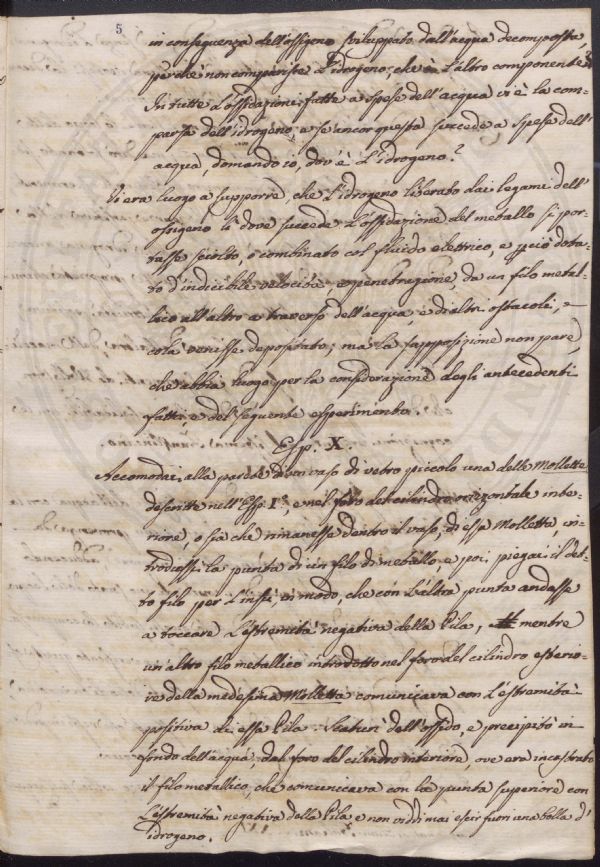 5
in conseguenza dell'ossigeno sviluppato dall'acqua decomposta,
perchè non comparisce l'idrogeno, che è l'altro componente?
In tutte l'ossidazioni fatte a spese dell'acqua vi è la com-
parsa dell'idrogeno, e se ancor questa succede a spese dell'
acqua, domando io, dov'è l'idrogeno?
Vi era luogo a supporre, che l'idrogeno liberato dai legami dell'
ossigeno lì dove succede l'ossidazione del metallo si por-
tasse sciolto, o combinato col fluido elettrico, e perciò dota-
to d'indicibile velocità, e penetrazione, da un filo metal-
lico all'altro a traverso dell'acqua, e di altri ostacoli, e
colà venisse depositato; ma la supposizione non pare,
che abbia luogo per la considerazione degli antecedenti
fatti, e del seguente esperimento.
Esp. X.
Accomodai alla parete di un vaso di vetro piccolo una delle Mollette
descritte nell'Esp. I°, e nel foro del cilindro orizontale inte-
riore, o sia che rimanesse dentro il vaso, di essa Molletta, in-
trodussi la punta di un filo di metallo, e poi piegai il det-
to filo per l'insù, in modo, che con l'altra punta andasse
a toccare l'estremità negativa della Pila, mentre
un altro filo metallico introdotto nel foro del cilindro esterio-
re della medesima Molletta comunicava con l'estremità
positiva di essa Pila. Scaturì dell'ossido, e precipitò in
fondo dell'acqua, dal foro del cilindro interiore, ove era incastrato
il filo metallico, che comunicava con la punta superiore con
l'estremità negativa della Pila, e non viddi mai escir fuori una bolla d'
idrogeno.